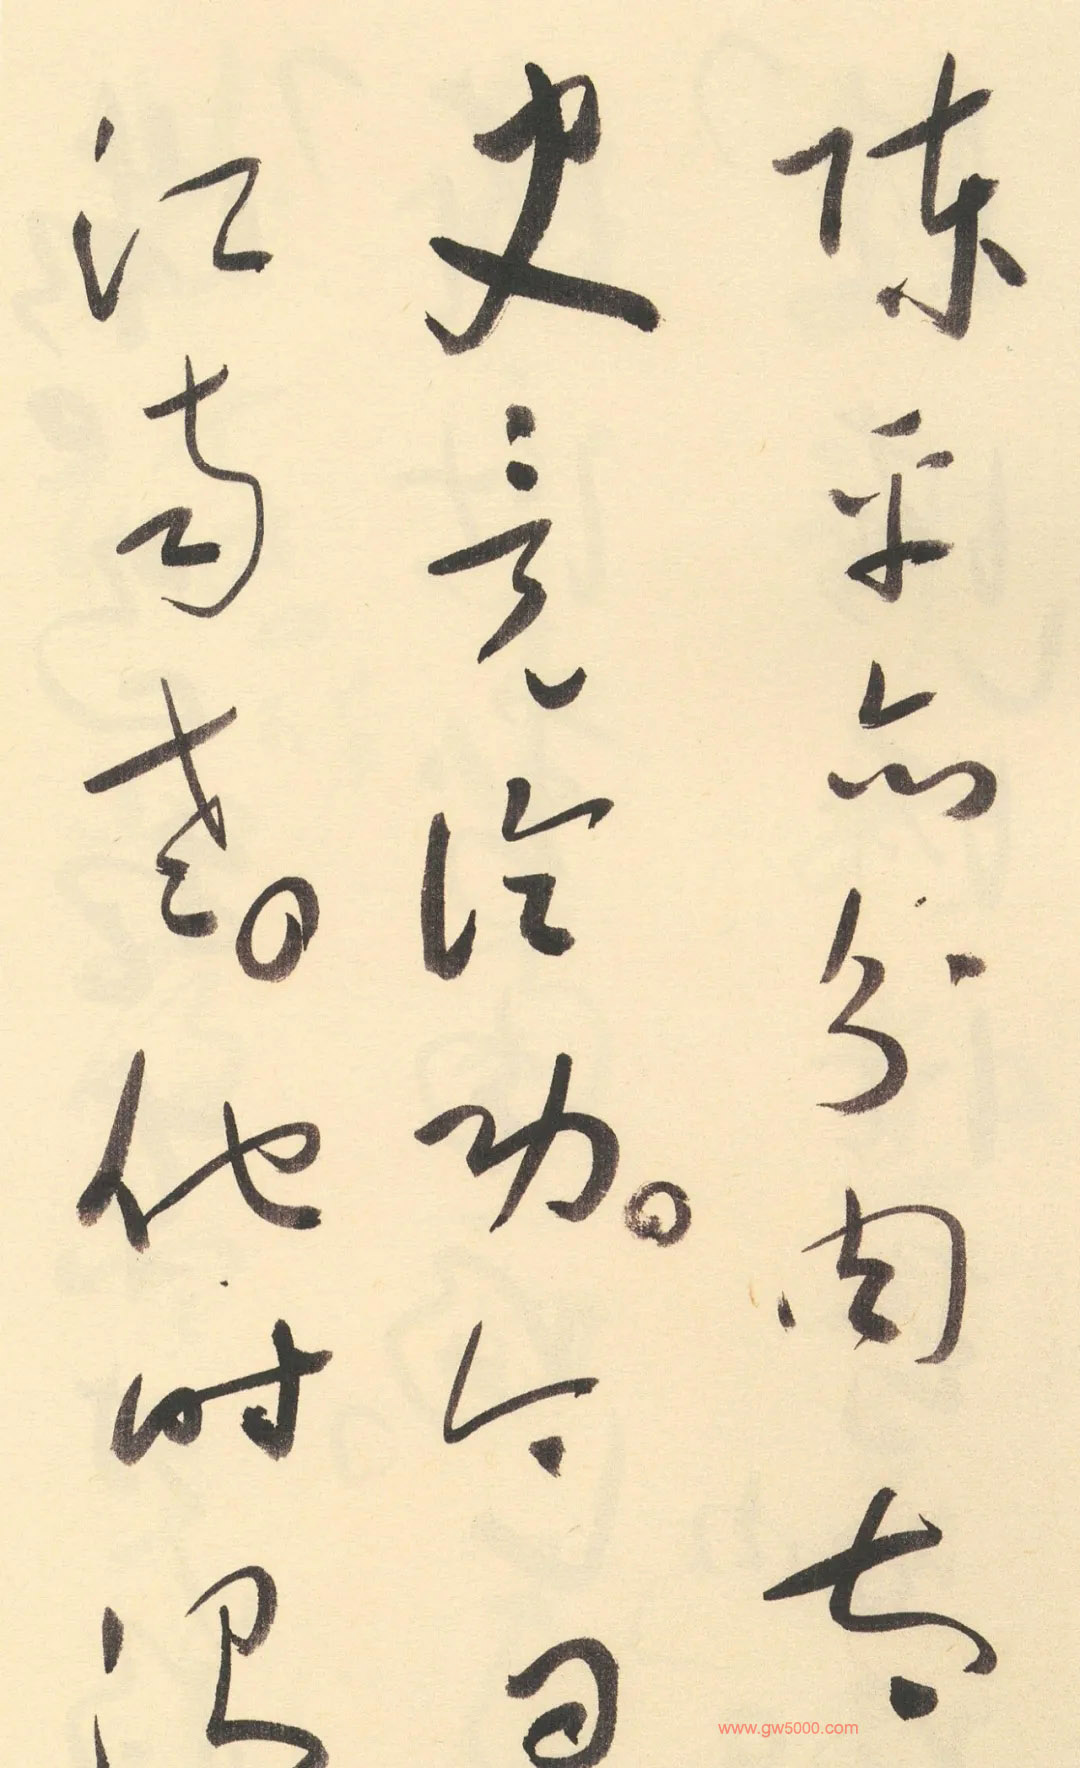 陈平亦分肉太
史竟论功。今日
江南老。他时渭
www.gw5000.com